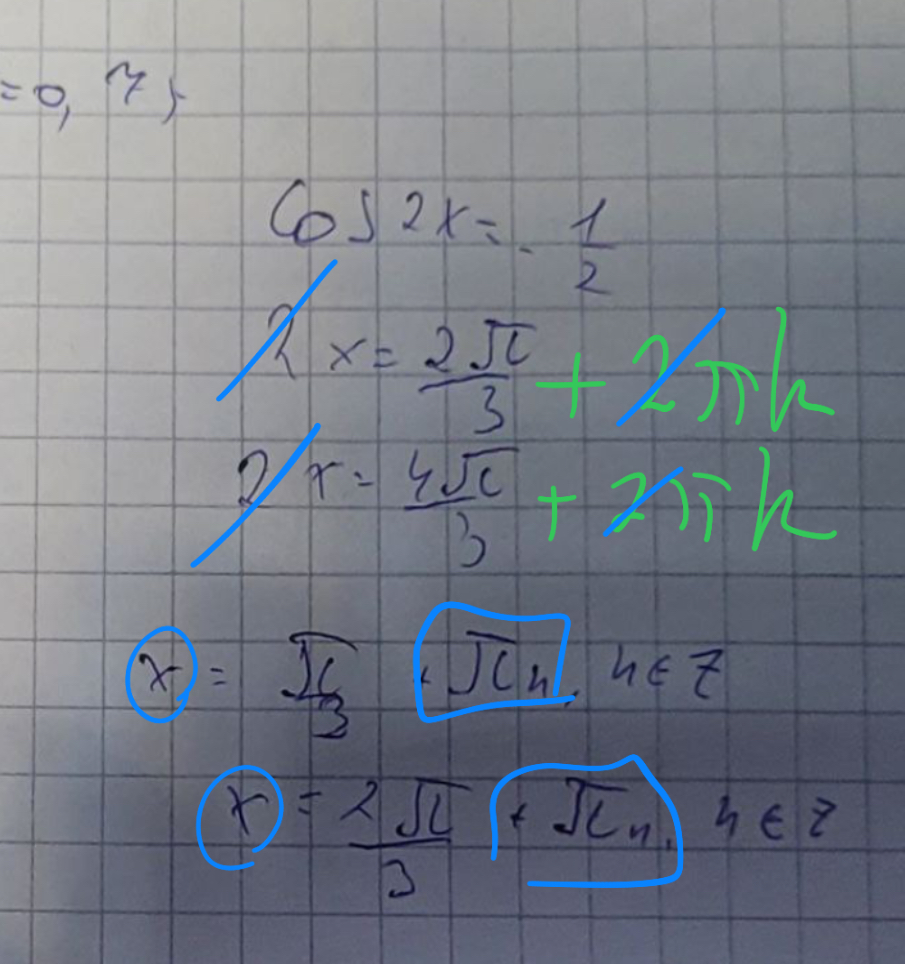 =0, 7;
Cos 2x = - 1/2
2x = 2π/3 + 2πk
2x = 4π/3 + 2πk
x = π/3 + πn, n ∈ Z
x = 2π/3 + πn, n ∈ Z